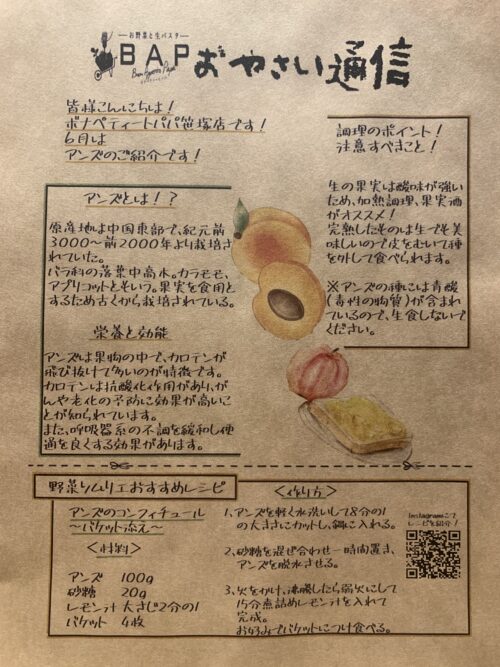 お野菜と生パスタ
BAP
Bon Appétit Papa
おやさい通信
皆様こんにちは！
ボナペティートパパ笹塚店です！
6月は
アンズのご紹介です！
アンズとは！？
原産地は中国東部で、紀元前
3000〜前2000年より栽培さ
れていた。
バラ科の落葉中高木。カラモモ、
アプリコットともいう。果実を食用と
するため古くから栽培されている。
栄養と効能
アンズは果物の中で、カロテンが
飛び抜けて多いのが特徴です。
カロテンは抗酸化作用があり、が
んや老化の予防に効果が高いこ
とが知られています。
また、呼吸器系の不調を緩和し便
通を良くする効果があります。
調理のポイント！
注意すべきこと！
生の果実は酸味が強い
ため、加熱調理、果実酒
がオススメ！
完熟したそのままは生でも美
味しいので皮をむいて種
を外して食べられます。
※アンズの種には青酸
(毒性の物質)が含まれ
ているので、生食しないで
ください。
野菜ソムリエおすすめレシピ
アンズのコンフィチュール
〜バケット添え〜
＜材料＞
アンズ 100g
砂糖 20g
レモン汁 大さじ2分の1
バケット 4枚
＜作り方＞
1、アンズを軽く水洗いして8分の1
の大きさにカットし、鍋に入れる。
2、砂糖を混ぜ合わせ一時間置き、
アンズを脱水させる。
3、火をかけ、沸騰したら弱火にして
15分煮詰めレモン汁を入れて
完成。
お好みでバケットにつけ食べる。
Instagramにて
レシピを紹介！